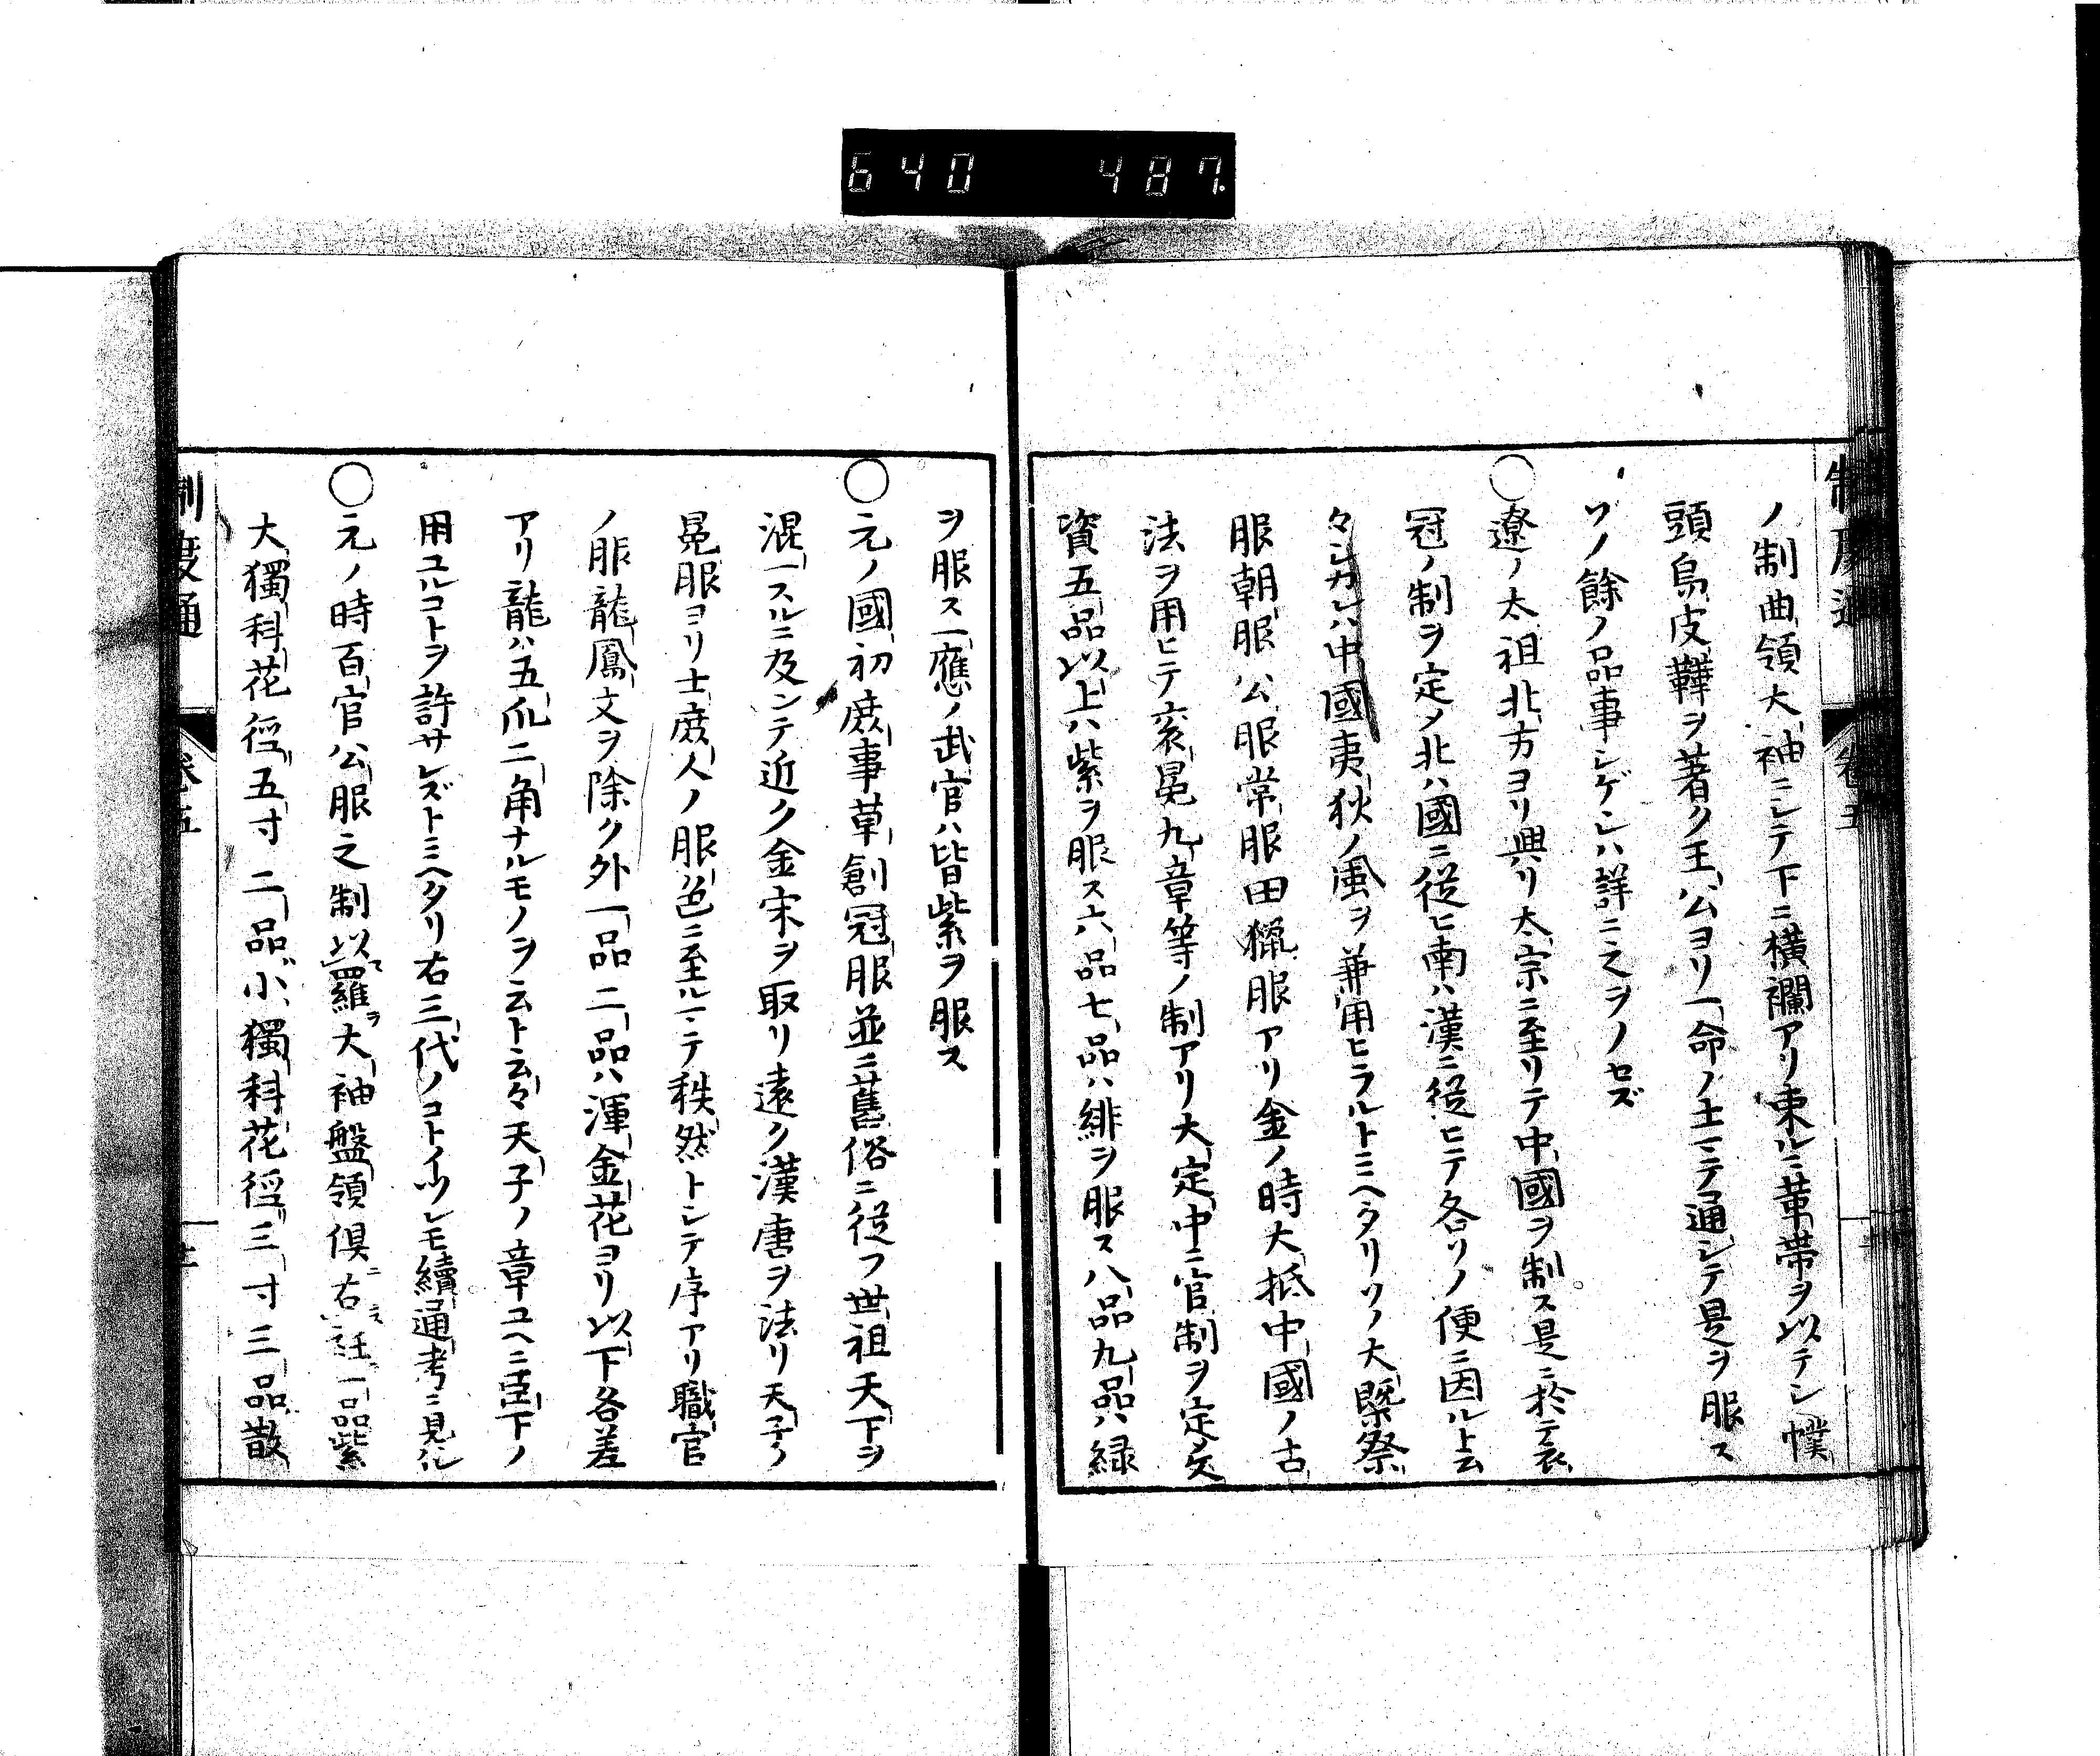 640 487.
制度通 卷五
ノ制曲領大袖ニシテ下ニ横襴アリ束ルニ革帯ヲ以テシ幞
頭烏皮鞾ヲ著ク王公ヨリ一命ノ士マテ通シテ是ヲ服ス
ソノ餘ノ品事シゲレハ詳ニ之ヲノセズ
○遼ノ太祖北方ヨリ興リ太宗ニ至リテ中國ヲ制ス是ニ於テ衣
冠ノ制ヲ定メ北ハ國ニ從ヒ南ハ漢ニ從ヒテ各ソノ便ニ因ルト云
々シカレハ中國夷狄ノ風ヲ兼用ヒラルトミヘタリソノ大槩祭
服朝服公服常服田獵服アリ金ノ時大抵中國ノ古
法ヲ用ヒテ衮冕九章等ノ制アリ大定中ニ官制ヲ定メ文
資五品以上ハ紫ヲ服ス六品七品ハ緋ヲ服ス八品九品ハ緑
ヲ服ス一應ノ武官ハ皆紫ヲ服ス
○元ノ國初庶事草創冠服並ニ舊俗ニ從フ世祖天下ヲ
混一スルニ及ンテ近ク金宋ヲ取リ遠ク漢唐ヲ法リ天子ノ
冕服ヨリ士庶人ノ服色ニ至ルマテ秩然トシテ序アリ職官
ノ服龍鳳文ヲ除ク外一品二品ハ渾金花ヨリ以下各差
アリ龍ハ五爪二角ナルモノヲ云ト云々天子ノ章ユヘニ臣下ノ
用ユルコトヲ許サレズトミヘタリ右三代ノコトイツレモ續通考ニ見ル
○元ノ時百官公服之制以羅ヲ大袖盤領俱ニ右ニス衽一品紫
大獨科花徑五寸二品小獨科花徑三寸三品散
制度通 卷五